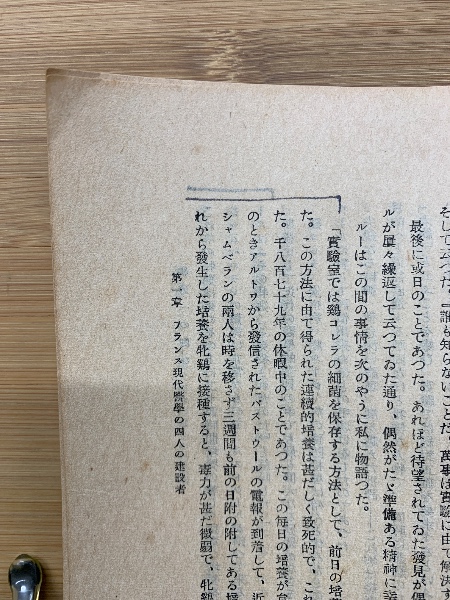 そして云つた。「誰も知らないことだ。萬事は實驗に由て解決す
最後に或日のことであつた。あれほど待望されてゐた發見が偶
ルが屢々繰返して云つてゐた通り、偶然がたゞ準備ある精神に
ルーはこの間の事情を次のやうに私に物語つた。
「實驗室では鷄コレラの細菌を保存する方法として、前日の培
た。この方法に由て得られた連續的培養は甚だしく致死的で、これ
た。千八百七十九年の休暇中のことであつた。この毎日の培養が怠
のときアルトワから發信されたパストウールの電報が到着して、近
シャムベランの兩人は時を移さず三週間も前の日附の附してある培
れから發生した培養を牝鷄に接種すると、毒力が甚だ微弱で、牝鷄
第一章 フランス現代醫學の四人の建設者